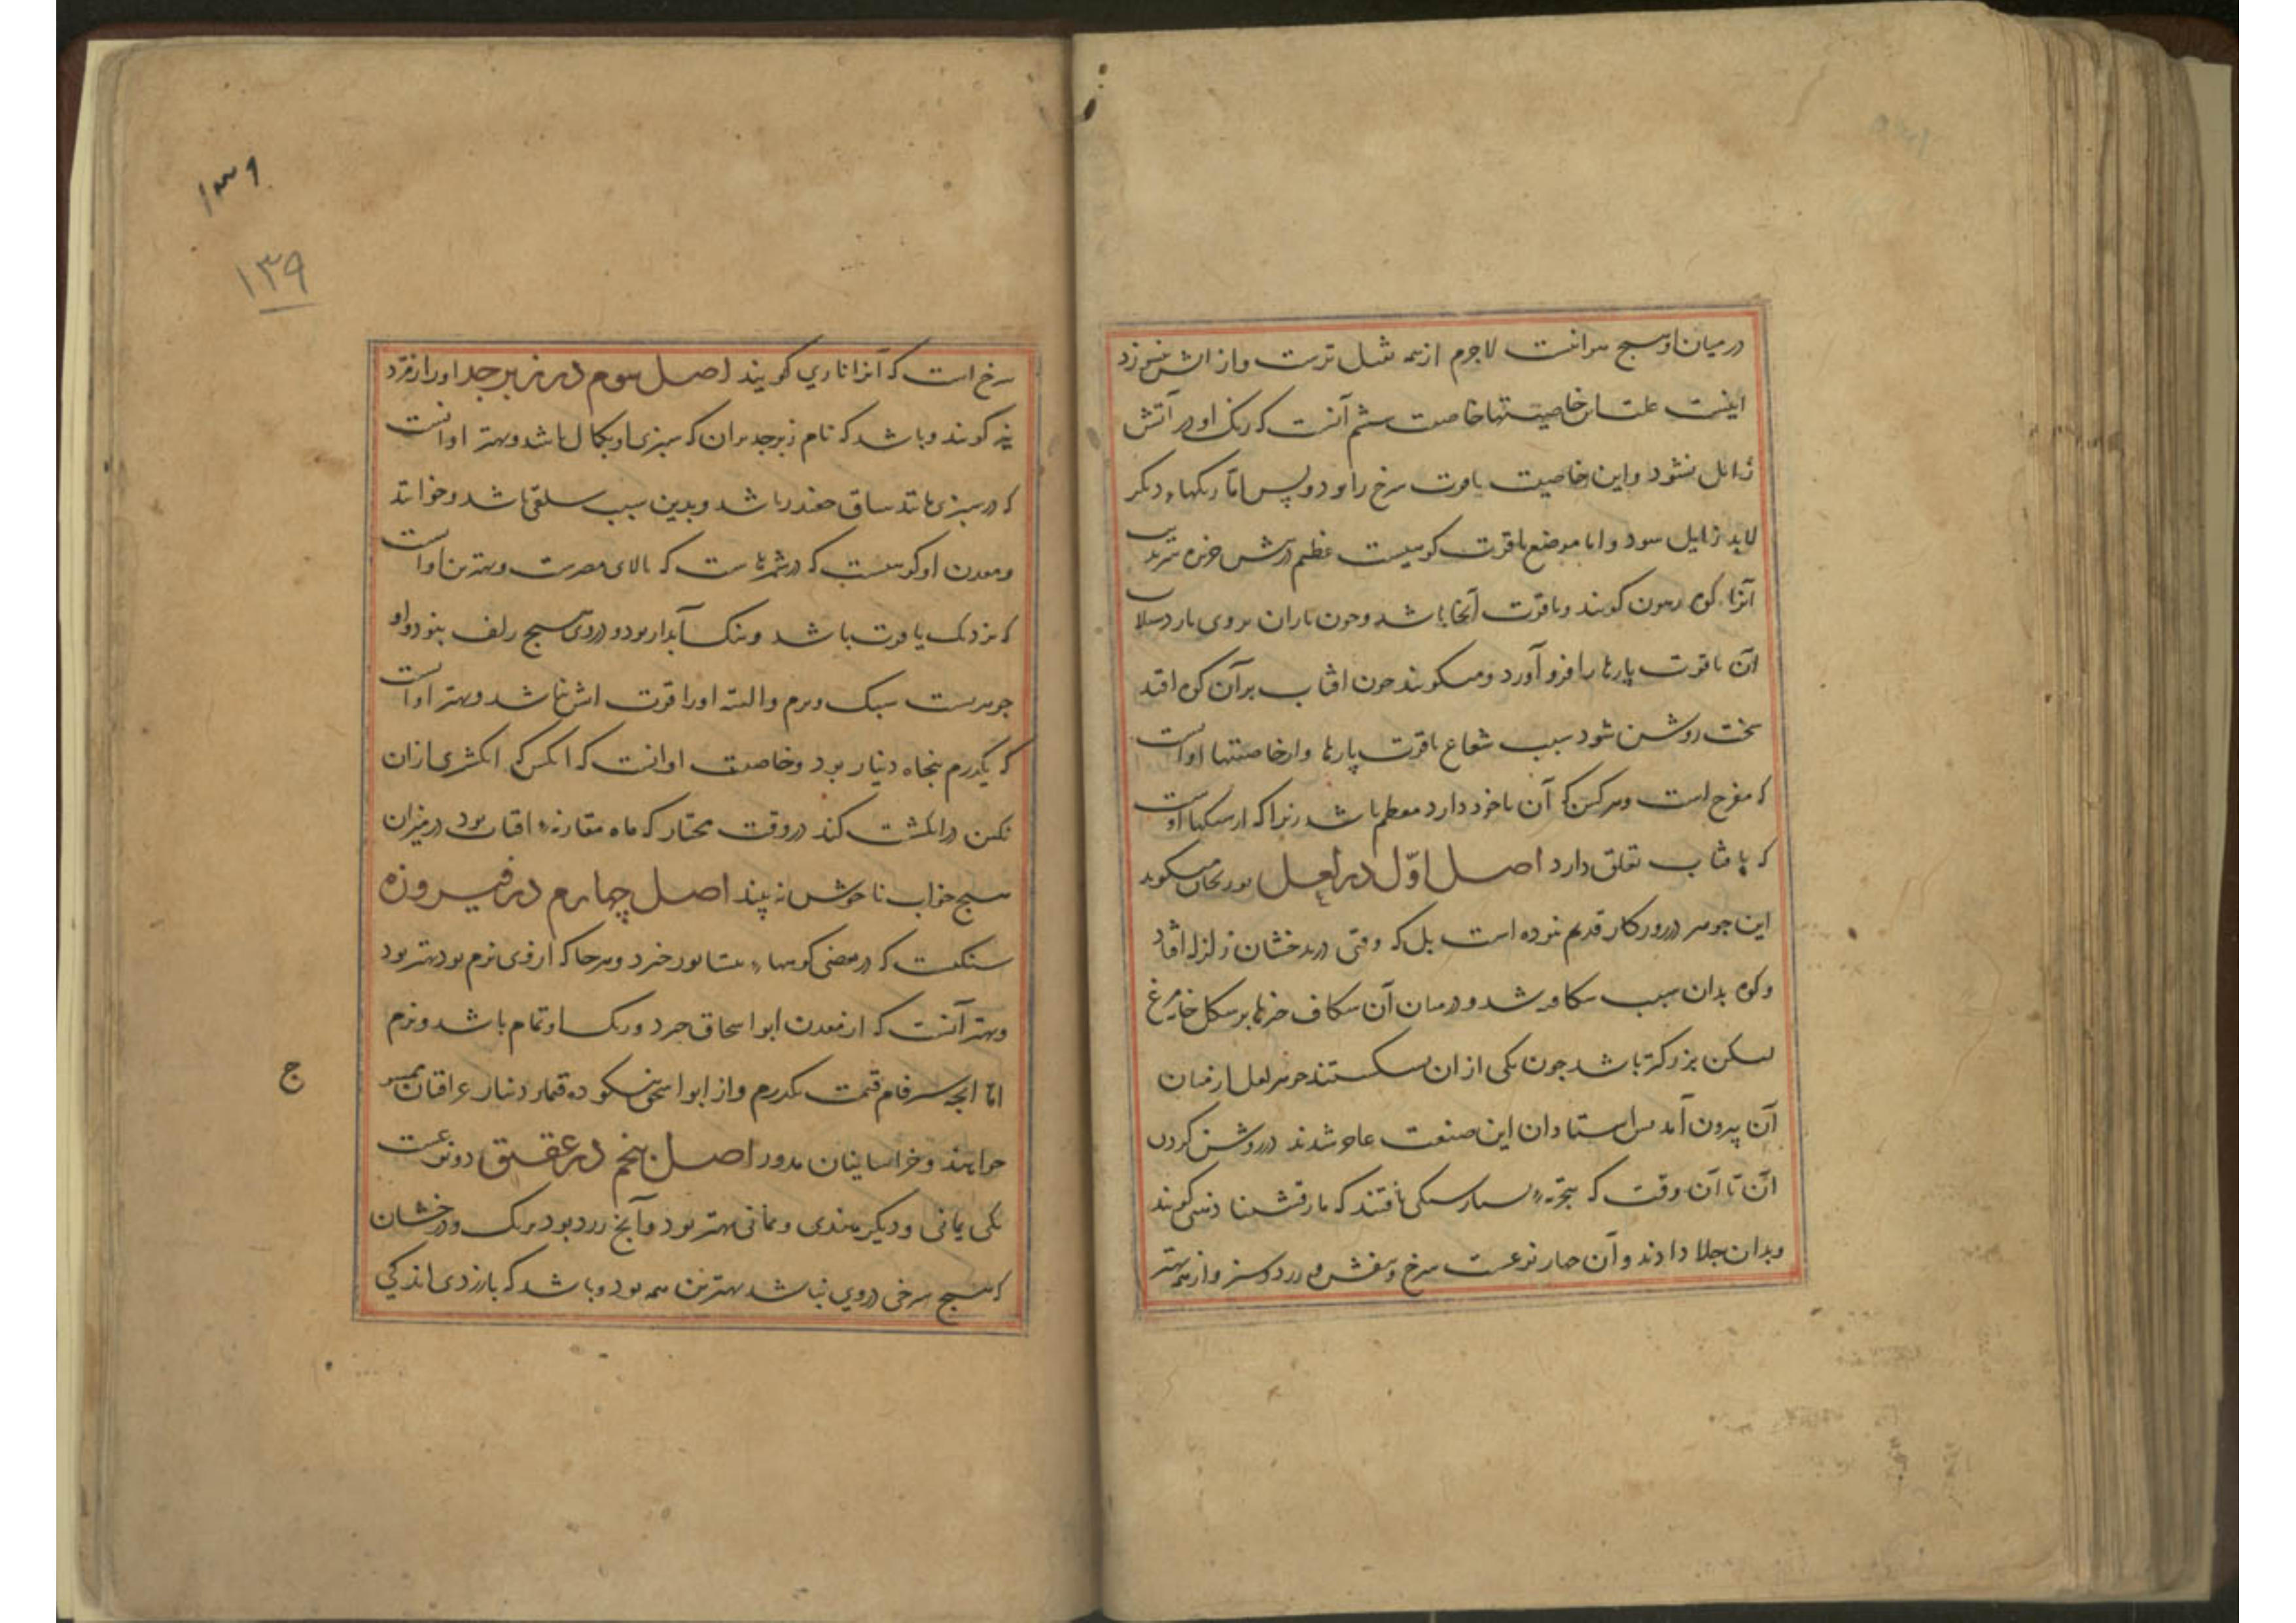 در میان او هیچ هوا نیست لاجرم از همه ثقیل ترست و از آتش نسوزد
اینست علت این خاصیتها خاصیت ششم آنست که رنک او در آتش
زائل نشود و این خاصیت یاقوت سرخ را بود و بس اما رنکهاء دیکر
لابد زایل شود و اما موضع یاقوت کوهیست عظیم در جزیره سرندیب
آنرا کوه رهون کویند و یاقوت آنجا باشد و چون باران بر وی بارد سیلاب
آن یاقوت پارها را فرو آورد و میکویند چون افتاب بر آن کوه افتد
سخت روشن شود بسبب شعاع یاقوت پارها و از خاصیتها او آنست
که مفرح است و هر کس که آن با خود دارد معظم باشد زیرا که از سنکها اوست
که بافتاب تعلق دارد اصل اول در لعل بوریحان میکوید
این جوهر در روزکار قدیم نبوده است بل که وقتی در بدخشان زلزله افتاد
و کوه بدان سبب شکافته شد و در میان آن شکاف چیزها بر شکل خایه مرغ
لیکن بزرکتر باشد چون یکی از ان بشکستند جوهر لعل از میان
آن بیرون آمد پس استادان این صنعت عاجز شدند در روشن کردن
آن تا آن وقت که بتجربه بسیار سنکی یافتند که مارقشیشا ذهبی کویند
و بدان جلا دادند و آن چهار نوعست سرخ و بنفش و زرد و سبز و از همه بهتر
۱۳۹
۱۳۹
سرخ است که آنرا ناری کویند اصل سوم در زبرجد او را زمرد
نیز کویند و باشد که نام زبرجد بر ان که سبزی او بکمال باشد و بهتر او آنست
که در سبزی مانند ساق چغندر باشد و بدین سبب سلقی باشد و خوانند
و معدن او کوهیست که در شهرهاست که بالای مصرست و بهترین او آنست
که نزدیک یاقوت باشد و سنک آبدار بود و در وی هیچ زلف نبود و او
جوهریست سبک و نرم و البته او را قوت اتش نباشد و بهتر او آنست
که یکدرم پنجاه دینار بود و خاصیت او انست که انکس که انکشتری از ان
نکین در انکشت کند در وقت مختار که ماه مقارنه افتاب بود در میزان
هیچ خواب ناخوش نه بیند اصل چهارم در فیروزه
سنکیست که در بعضی کوهها نشابور خیزد و هر جا که از وی نرم بود بهتر بود
و بهتر آنست که از معدن ابو اسحاق خیزد و رنک او تمام باشد و نرم
اما آنچه شیرفام قیمت یکدرم و از ابو اسحق نیکو ده دینار عراقیان ممسح
خواهند و خراسانیان مدور اصل پنجم در عقیق دو نوعست
یکی یمانی و دیکر هندی و یمانی بهتر بود و آنچ زرد بود برنک و درخشان
که هیچ سرخی در وی نباشد بهترین همه بود و باشد که با زردی اندکی
ج